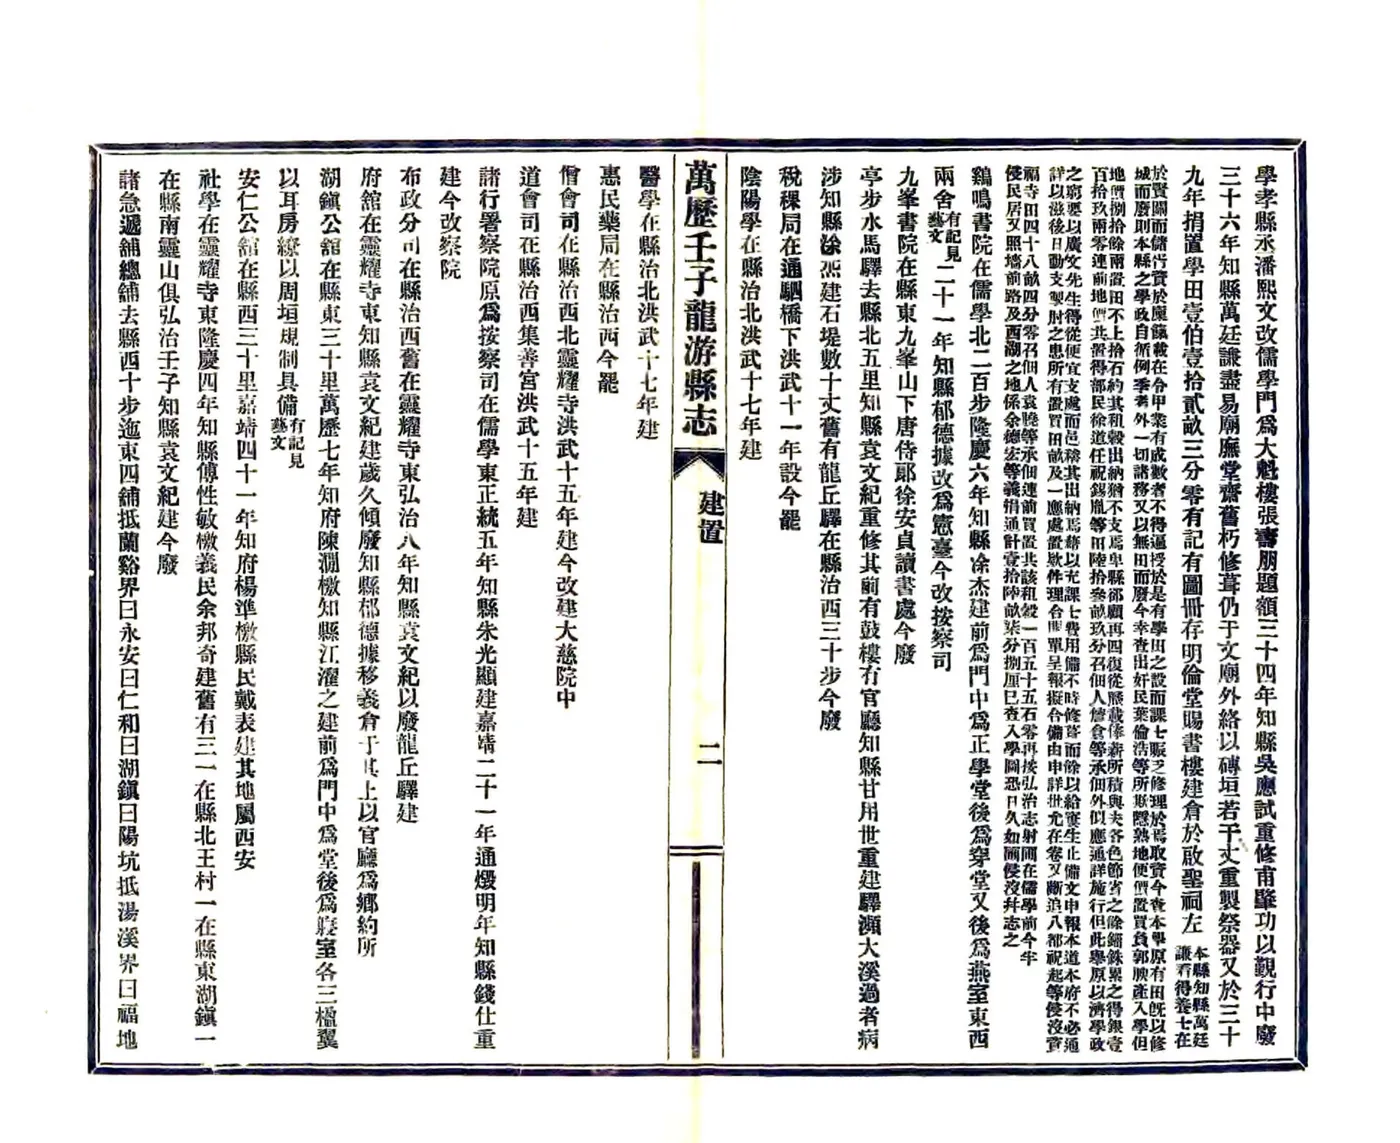 學孝縣丞潘熙文改儒學門爲大魁樓張壽朋題額三十四年知縣吳應試重修甫肇功以覲行中廢
三十六年知縣萬廷謙盡易廟廡堂齋舊朽修葺仍于文廟外絡以磚垣若干丈重製祭器又於三十
九年捐置學田壹伯壹拾貳畝三分零有記有圖冊存明倫堂賜書樓建倉於啟聖祠左
本縣知縣萬廷
謙看得養士在
於賢關而儲偫資於廩餼載在令甲業有成數者不得逼授於是有學田之設而課士賑乏修理於焉取資今查本學原有田旣以修
城而廢則本縣之學政自循例季考外一切諸務又以無田而廢今幸查出奸民葉倫浩等所欺隱熟地便價置買負郭腴產入學但
地價捌拾餘兩置田不上拾石約其租穀出納猶不支焉卑縣鄙願再四復從縣裁俸薪所積與夫各色節省之餘錙銖累之得銀壹
百拾玖兩零連前地價共置得部民徐道任祝錫胤等田陸拾參畝玖分召佃人詹倉等承佃外似應通詳施行但此舉原以濟學政
之窮要以廣文先生得從便宜支處而邑稽其出納焉藉以充課士費用備不時修葺而餘以給寠生止備文申報本道本府不必通
詳以滋後日動支掣肘之患所有置買田畝及一應處置欵件理合開單呈報擬合備由申詳批允在卷又斷追八都祝起等侵沒資
福寺田四十八畝四分零召佃人袁曉等承佃連前買置共該租穀一百五十五石零再按弘治志射圃在儒學前今半
侵民居又照墻前路及西湖之地係余德宏等義捐通計壹拾陸畝柒分捌厘已查入學圖恐日久如圃侵沒幷志之
鷄鳴書院在儒學北二百步隆慶六年知縣涂杰建前爲門中爲正學堂後爲穿堂又後爲燕室東西
兩舍有記見藝文二十一年知縣郁德據改爲憲臺今改按察司
九峯書院在縣東九峯山下唐侍郞徐安貞讀書處今廢
亭步水馬驛去縣北五里知縣袁文紀重修其前有鼓樓有官廳知縣甘用世重建驛瀕大溪過者病
涉知縣涂杰建石堤數十丈舊有龍丘驛在縣治西三十步今廢
稅稞局在通駟橋下洪武十一年設今罷
陰陽學在縣治北洪武十七年建
萬歷壬子龍游縣志
建置
二
醫學在縣治北洪武十七年建
惠民藥局在縣治西今罷
僧會司在縣治西北靈耀寺洪武十五年建今改建大慈院中
道會司在縣治西集善宮洪武十五年建
諸行署察院原爲按察司在儒學東正統五年知縣朱光顯建嘉靖二十一年通燬明年知縣錢仕重
建今改察院
布政分司在縣治西舊在靈耀寺東弘治八年知縣袁文紀以廢龍丘驛建
府舘在靈耀寺東知縣袁文紀建歲久傾廢知縣郁德據移義倉于其上以官廳爲鄉約所
湖鎮公舘在縣東三十里萬歷七年知府陳淵檄知縣江濯之建前爲門中爲堂後爲寢室各三楹翼
以耳房繚以周垣規制具備有記見藝文
安仁公舘在縣西三十里嘉靖四十一年知府楊準檄縣民戴表建其地屬西安
社學在靈耀寺東隆慶四年知縣傅性敏檄義民余邦奇建舊有三一在縣北王村一在縣東湖鎭一
在縣南靈山俱弘治壬子知縣袁文紀建今廢
諸急遞舖總舖去縣西十步迤東四舖抵蘭谿界曰永安曰仁和曰湖鎮曰陽坑抵湯溪界曰福地